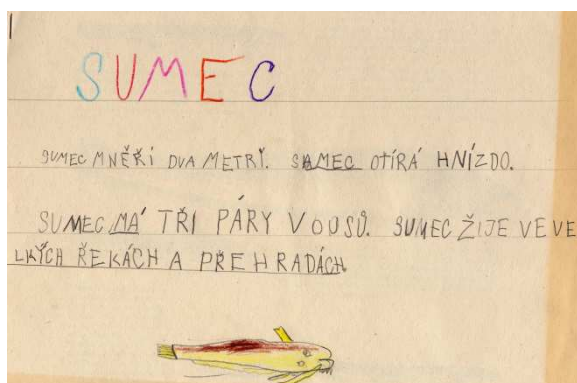 SUMEC
SUMEC MNĚŘÍ DVA METRY̌. SAMEC OTÍRÁ HNÍZDO.
SUMEC MÁ TŘI PÁRY VOUSŮ. SUMEC ŽIJE VE VE
LKÝCH ŘEKÁCH A PŘEHRADÁCH.